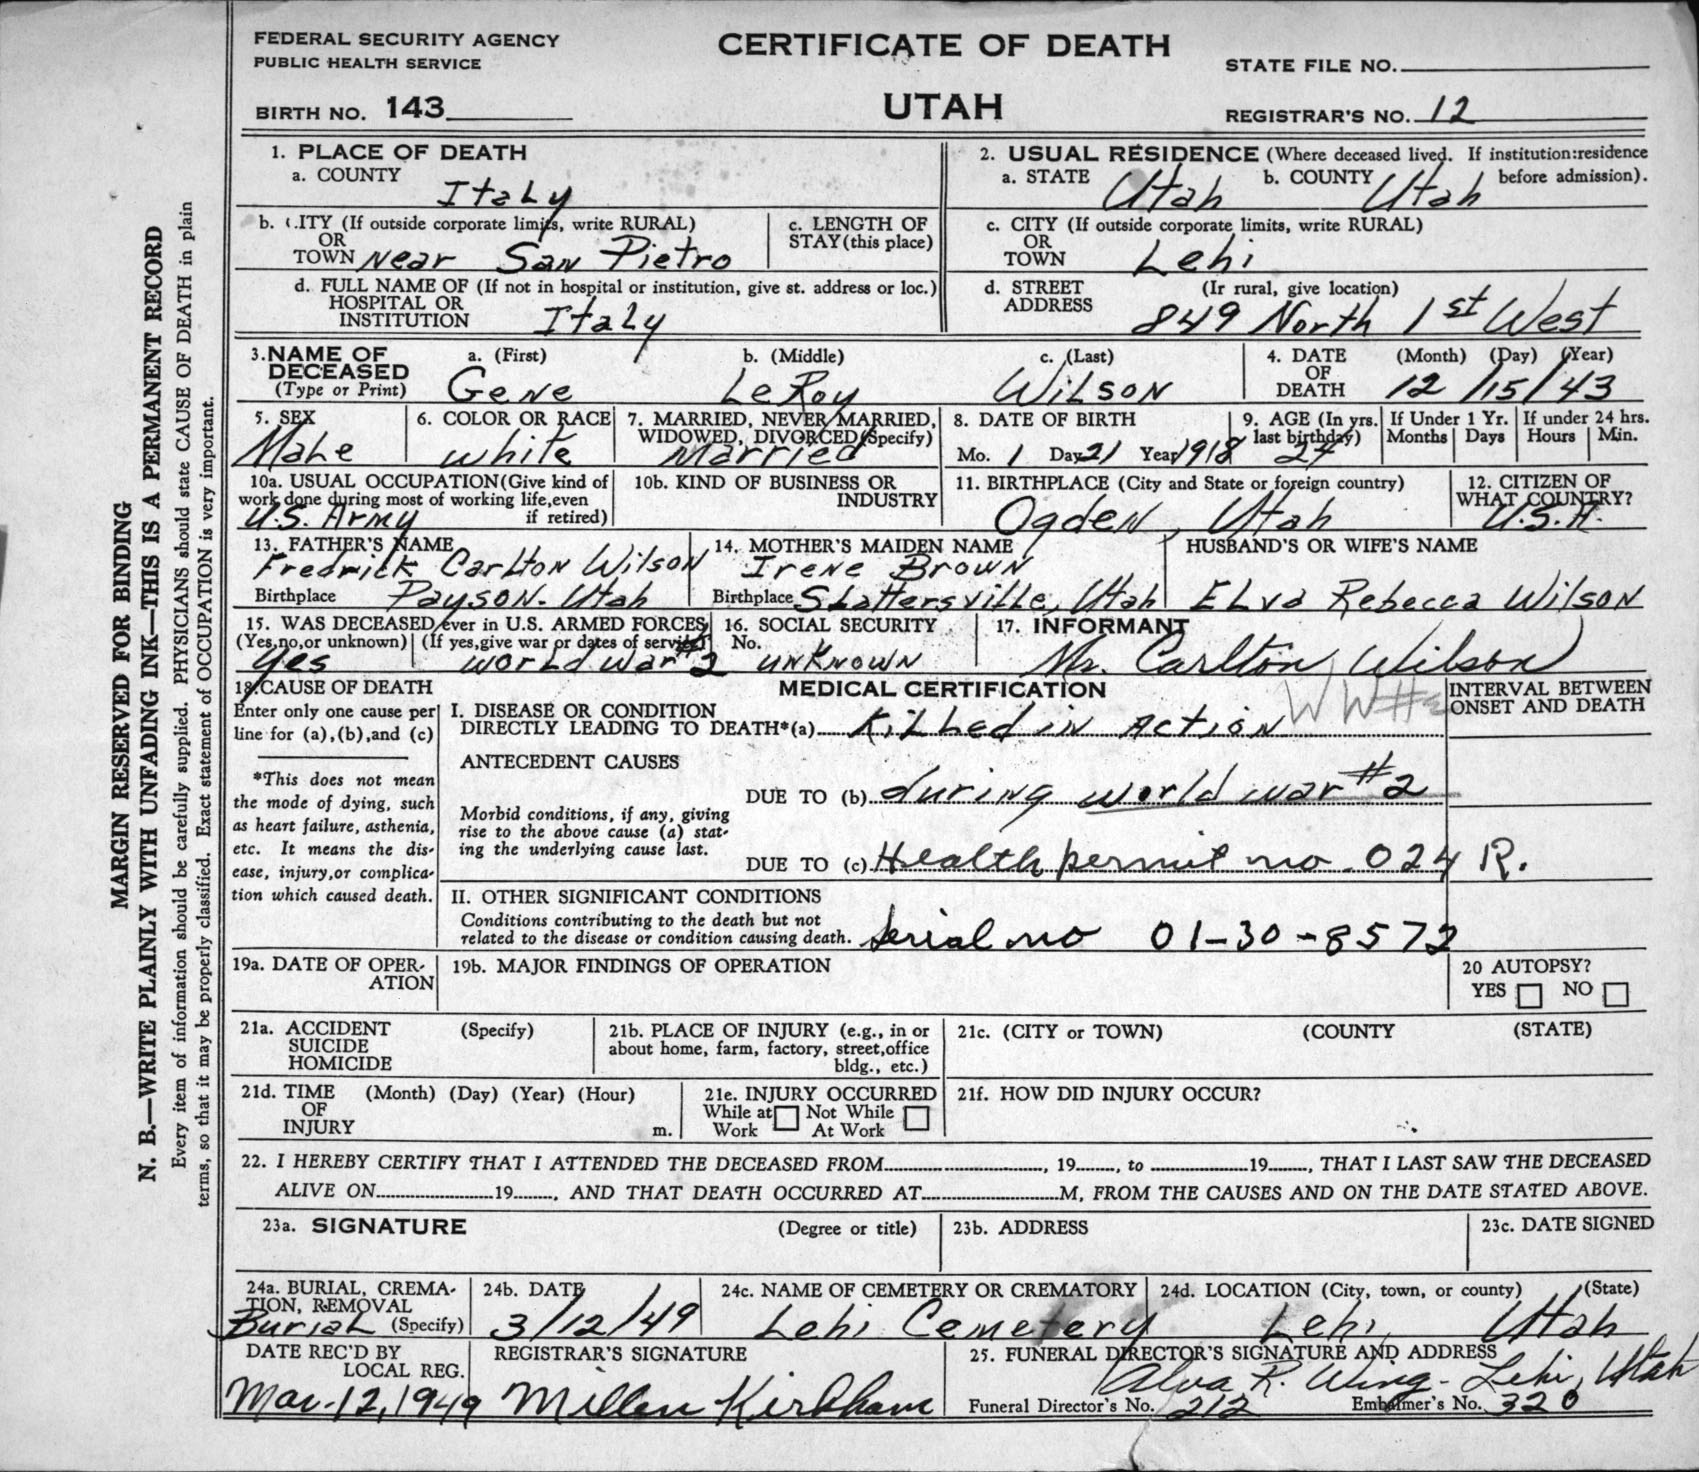 FEDERAL SECURITY AGENCY
PUBLIC HEALTH SERVICE
CERTIFICATE OF DEATH
STATE FILE NO.
BIRTH NO. 143
UTAH
REGISTRAR'S NO. 12
MARGIN RESERVED FOR BINDING
N. B.—WRITE PLAINLY WITH UNFADING INK—THIS IS A PERMANENT RECORD
Every item of information should be carefully supplied. PHYSICIANS should state CAUSE OF DEATH in plain
terms, so that it may be properly classified. Exact statement of OCCUPATION is very important.
1. PLACE OF DEATH
a. COUNTY
Italy
2. USUAL RESIDENCE (Where deceased lived. If institution:residence
before admission).
a. STATE Utah b. COUNTY Utah
b. CITY (If outside corporate limits, write RURAL)
OR
TOWN Near San Pietro
c. LENGTH OF
STAY (this place)
c. CITY (If outside corporate limits, write RURAL)
OR
TOWN Lehi
d. FULL NAME OF (If not in hospital or institution, give st. address or loc.)
HOSPITAL OR
INSTITUTION Italy
d. STREET (Ir rural, give location)
ADDRESS
849 North 1st West
3. NAME OF
DECEASED
(Type or Print)
a. (First) b. (Middle) c. (Last)
Gene LeRoy Wilson
4. DATE
OF
DEATH
(Month) (Day) (Year)
12/15/43
5. SEX
Male
6. COLOR OR RACE
white
7. MARRIED, NEVER MARRIED,
WIDOWED, DIVORCED (Specify)
Married
8. DATE OF BIRTH
Mo. 1 Day 21 Year 1918
9. AGE (In yrs.
last birthday)
If Under 1 Yr.
Months Days
If under 24 hrs.
Hours Min.
10a. USUAL OCCUPATION (Give kind of
work done during most of working life, even
if retired)
U.S. Army
10b. KIND OF BUSINESS OR
INDUSTRY
11. BIRTHPLACE (City and State or foreign country)
Ogden, Utah
12. CITIZEN OF
WHAT COUNTRY?
U.S.A.
13. FATHER'S NAME
Fredrick Carlton Wilson
Birthplace Payson. Utah
14. MOTHER'S MAIDEN NAME
Irene Brown
Birthplace Slattersville, Utah
HUSBAND'S OR WIFE'S NAME
Elva Rebecca Wilson
15. WAS DECEASED ever in U.S. ARMED FORCES
(Yes, no, or unknown) (If yes, give war or dates of service)
Yes world war #2
16. SOCIAL SECURITY
No.
unknown
17. INFORMANT
Mr. Carlton Wilson
18. CAUSE OF DEATH
Enter only one cause per
line for (a), (b), and (c)
*This does not mean
the mode of dying, such
as heart failure, asthenia,
etc. It means the dis-
ease, injury, or complica-
tion which caused death.
MEDICAL CERTIFICATION
INTERVAL BETWEEN
ONSET AND DEATH
I. DISEASE OR CONDITION
DIRECTLY LEADING TO DEATH*(a) Killed in Action WW#2
ANTECEDENT CAUSES
DUE TO (b) during world war #2
Morbid conditions, if any, giving
rise to the above cause (a) stat-
ing the underlying cause last.
DUE TO (c) Health permit no. 024 R.
II. OTHER SIGNIFICANT CONDITIONS
Conditions contributing to the death but not
related to the disease or condition causing death.
Serial no 01-30-8572
19a. DATE OF OPER-
ATION
19b. MAJOR FINDINGS OF OPERATION
20 AUTOPSY?
YES NO
21a. ACCIDENT (Specify)
SUICIDE
HOMICIDE
21b. PLACE OF INJURY (e.g., in or
about home, farm, factory, street, office
bldg., etc.)
21c. (CITY or TOWN) (COUNTY (STATE)
21d. TIME (Month) (Day) (Year) (Hour)
OF
INJURY m.
21e. INJURY OCCURRED
While at Not While
Work At Work
21f. HOW DID INJURY OCCUR?
22. I HEREBY CERTIFY THAT I ATTENDED THE DECEASED FROM , 19 , to 19 , THAT I LAST SAW THE DECEASED
ALIVE ON 19 , AND THAT DEATH OCCURRED AT M, FROM THE CAUSES AND ON THE DATE STATED ABOVE.
23a. SIGNATURE (Degree or title)
23b. ADDRESS
23c. DATE SIGNED
24a. BURIAL, CREMA-
TION, REMOVAL
Burial (Specify)
24b. DATE
3/12/49
24c. NAME OF CEMETERY OR CREMATORY
Lehi Cemetery
24d. LOCATION (City, town, or county) (State)
Lehi, Utah
DATE REC'D BY
LOCAL REG.
Mar. 12, 1949
REGISTRAR'S SIGNATURE
Millen Kirkham
25. FUNERAL DIRECTOR'S SIGNATURE AND ADDRESS
Alva R. Wing - Lehi, Utah
Funeral Director's No. 212 Embalmer's No. 320